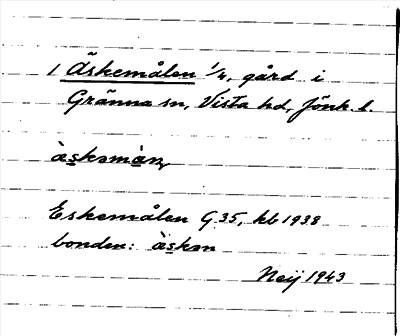 1 Äskemålen 1/4, gård i
Gränna sn, Vista hd, Jönk. l.
àskəmàn,
Eskemålen G 35, kb 1938
bonden: àskən
Neij 1943